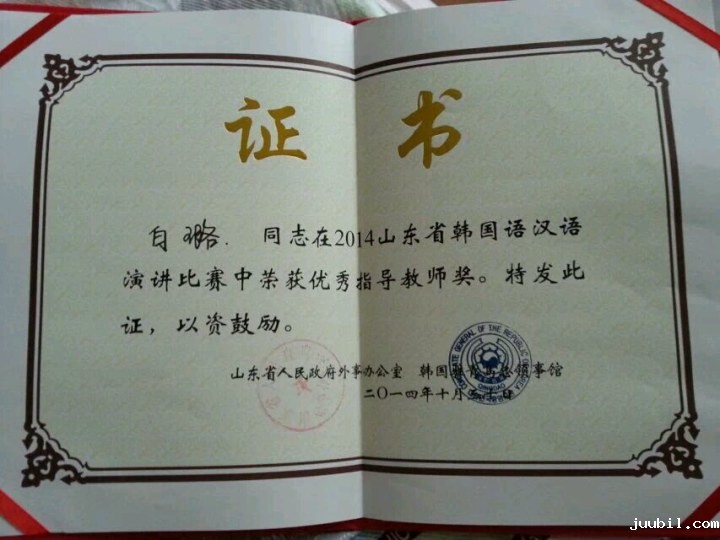 证书
白璐. 同志在2014山东省韩国语汉语
演讲比赛中荣获优秀指导教师奖。特发此
证，以资鼓励。
山东省人民政府外事办公室 韩国驻青岛总领事馆
二〇一四年十月
CONSULATE GENERAL OF THE REPUBLIC OF KOREA
juubil.com